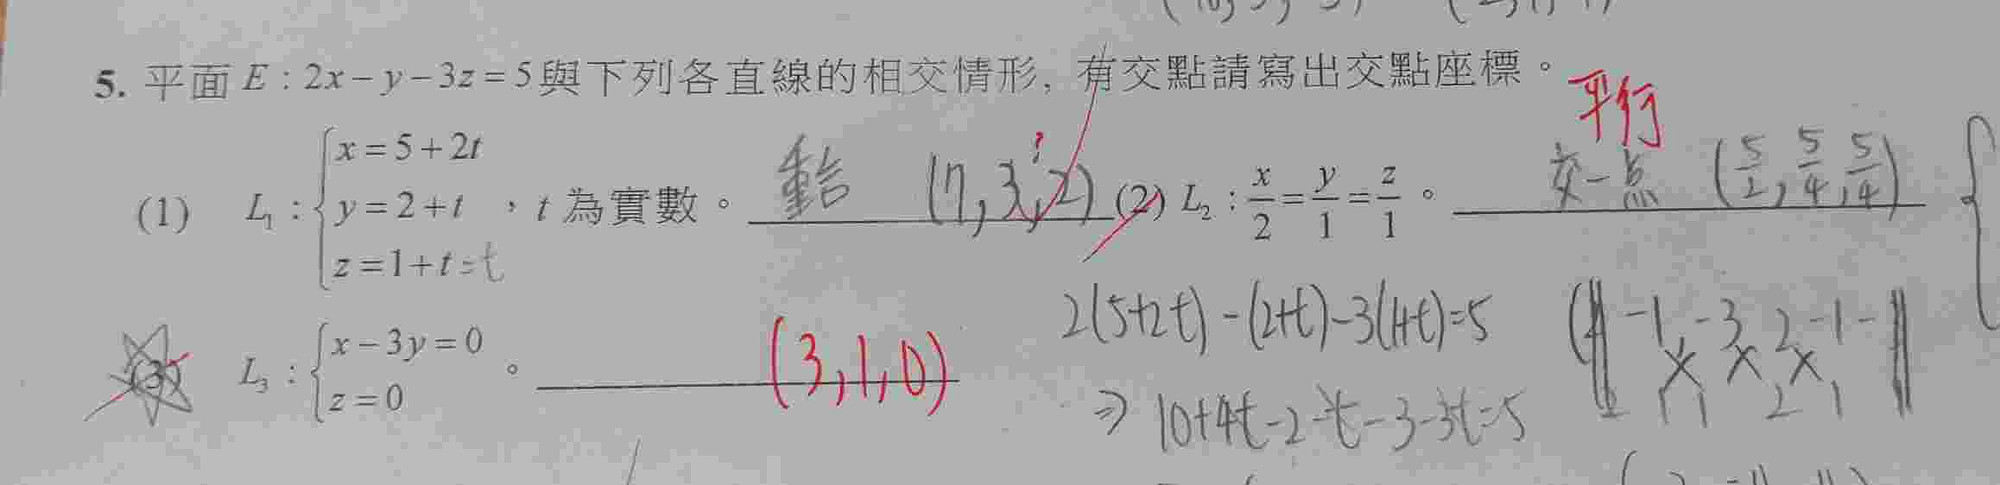 5. 平面 E : 2x - y - 3z = 5 與下列各直線的相交情形, 有交點請寫出交點座標。
平行
(1) L₁ : { x = 5 + 2t
y = 2 + t , t 為實數。 重合 (7, 3, 2)
z = 1 + t = t
(2) L₂ : x/2 = y/1 = z/1 。 交一点 (5/2, 5/4, 5/4)
(3) L₃ : { x - 3y = 0
z = 0 。 (3, 1, 0)
2(5+2t) - (2+t) - 3(1+t) = 5
⇒ 10+4t-2-t-3-3t=5
-1 -3 2 -1
1 1 2 1